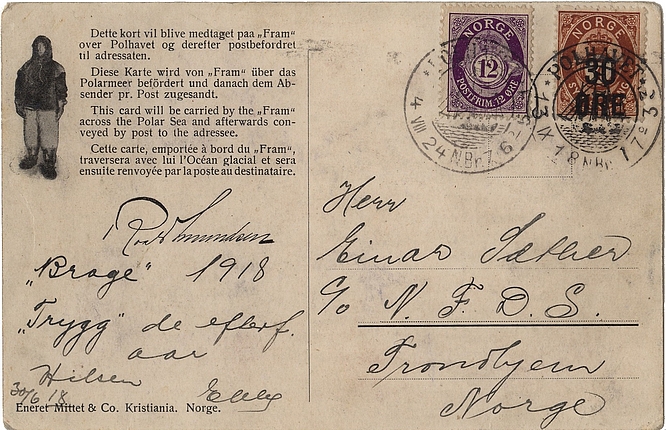 Dette kort vil blive medtaget paa „Fram"
over Polhavet og derefter postbefordret
til adressaten.
Diese Karte wird von „Fram" über das
Polarmeer befördert und danach dem Ab-
sender pr. Post zugesandt.
This card will be carried by the „Fram"
across the Polar Sea and afterwards con-
veyed by post to the adressee.
Cette carte, emportée à bord du „Fram",
traversera avec lui l'Océan glacial et sera
ensuite renvoyée par la poste au destinataire.
NORGE
12
POSTFRIM. 12 ØRE
NORGE
30
ØRE
POLHAVET
4 VIII 24
Roald Amundsen
„Brage" 1918
„Trygg" de efterf.
aar
Hilsen
30/6 18
Eneret Mittet & Co. Kristiania. Norge.
Herr
Einar Sæther
c/o N. F. D. S.
Trondhjem
Norge